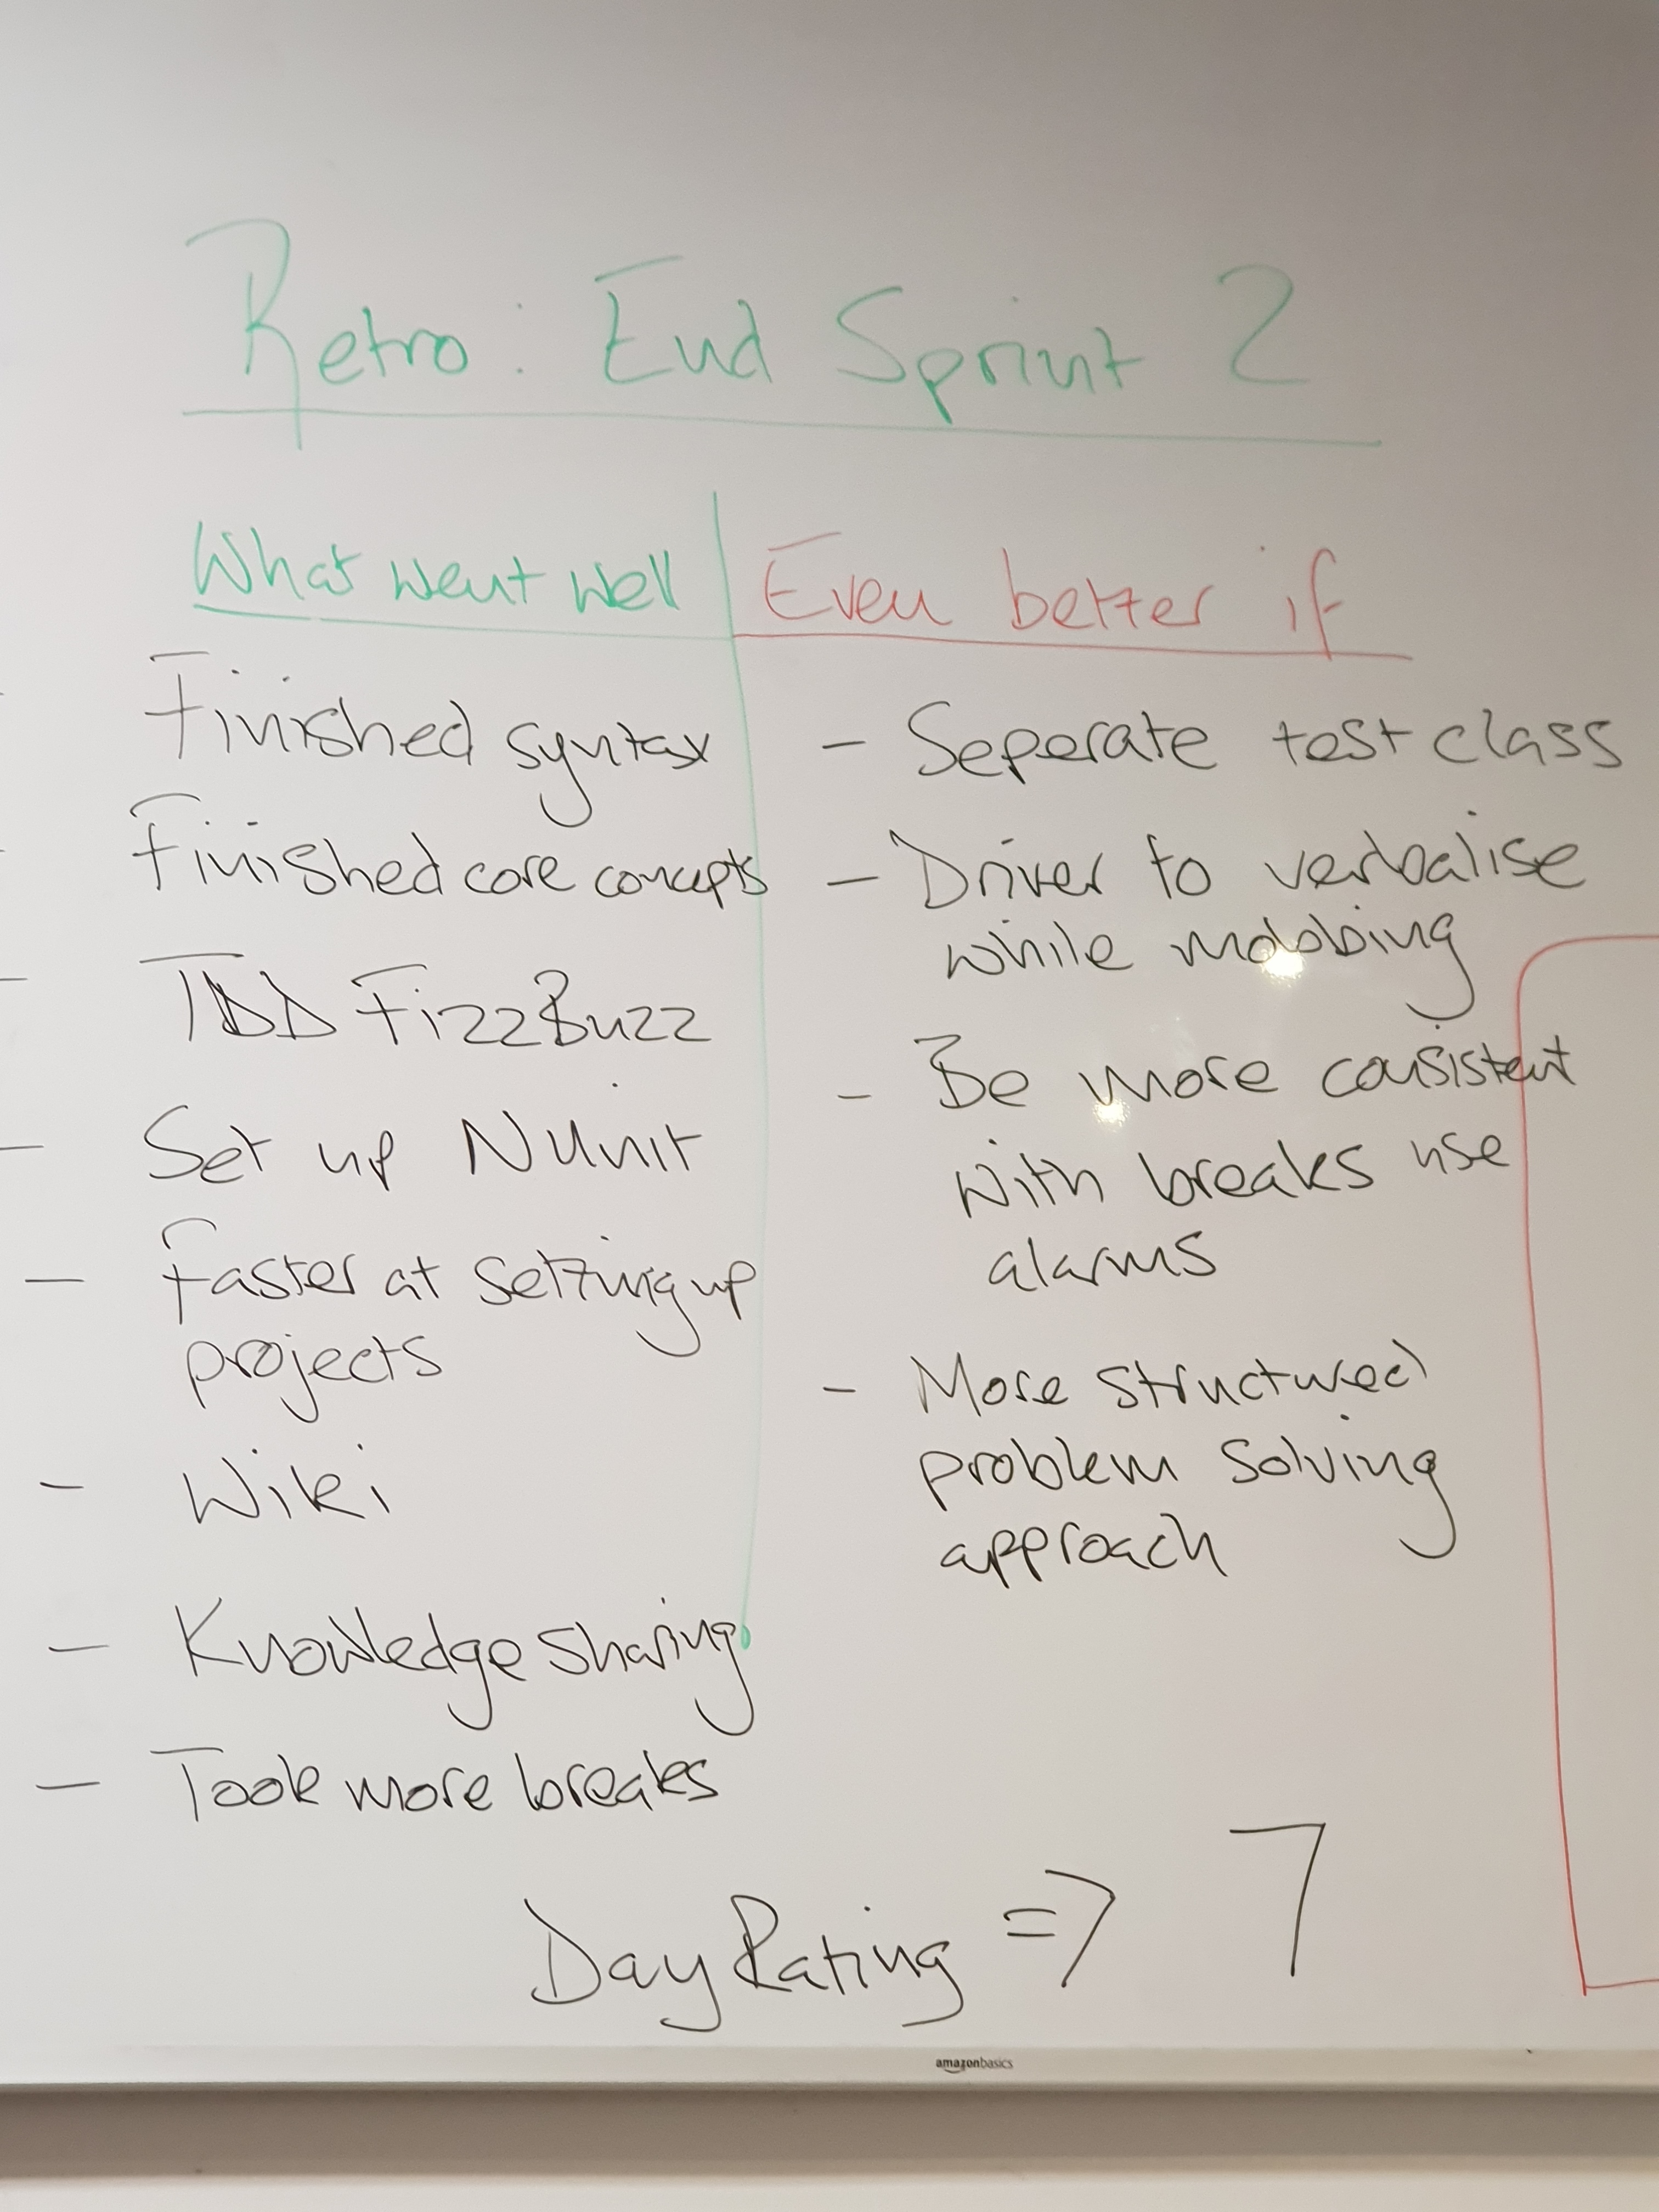 Retro: End Sprint 2
What went well
Finished syntax
Finished core concepts
- TDD FizzBuzz
- Set up NUnit
- Faster at setting up
projects
- Wiki
- Knowledge sharing
- Took more breaks
Even better if
- Seperate test class
- Driver to verbalise
while mobbing
- Be more consistent
with breaks use
alarms
- More structured
problem solving
approach
Day Rating => 7
amazonbasics